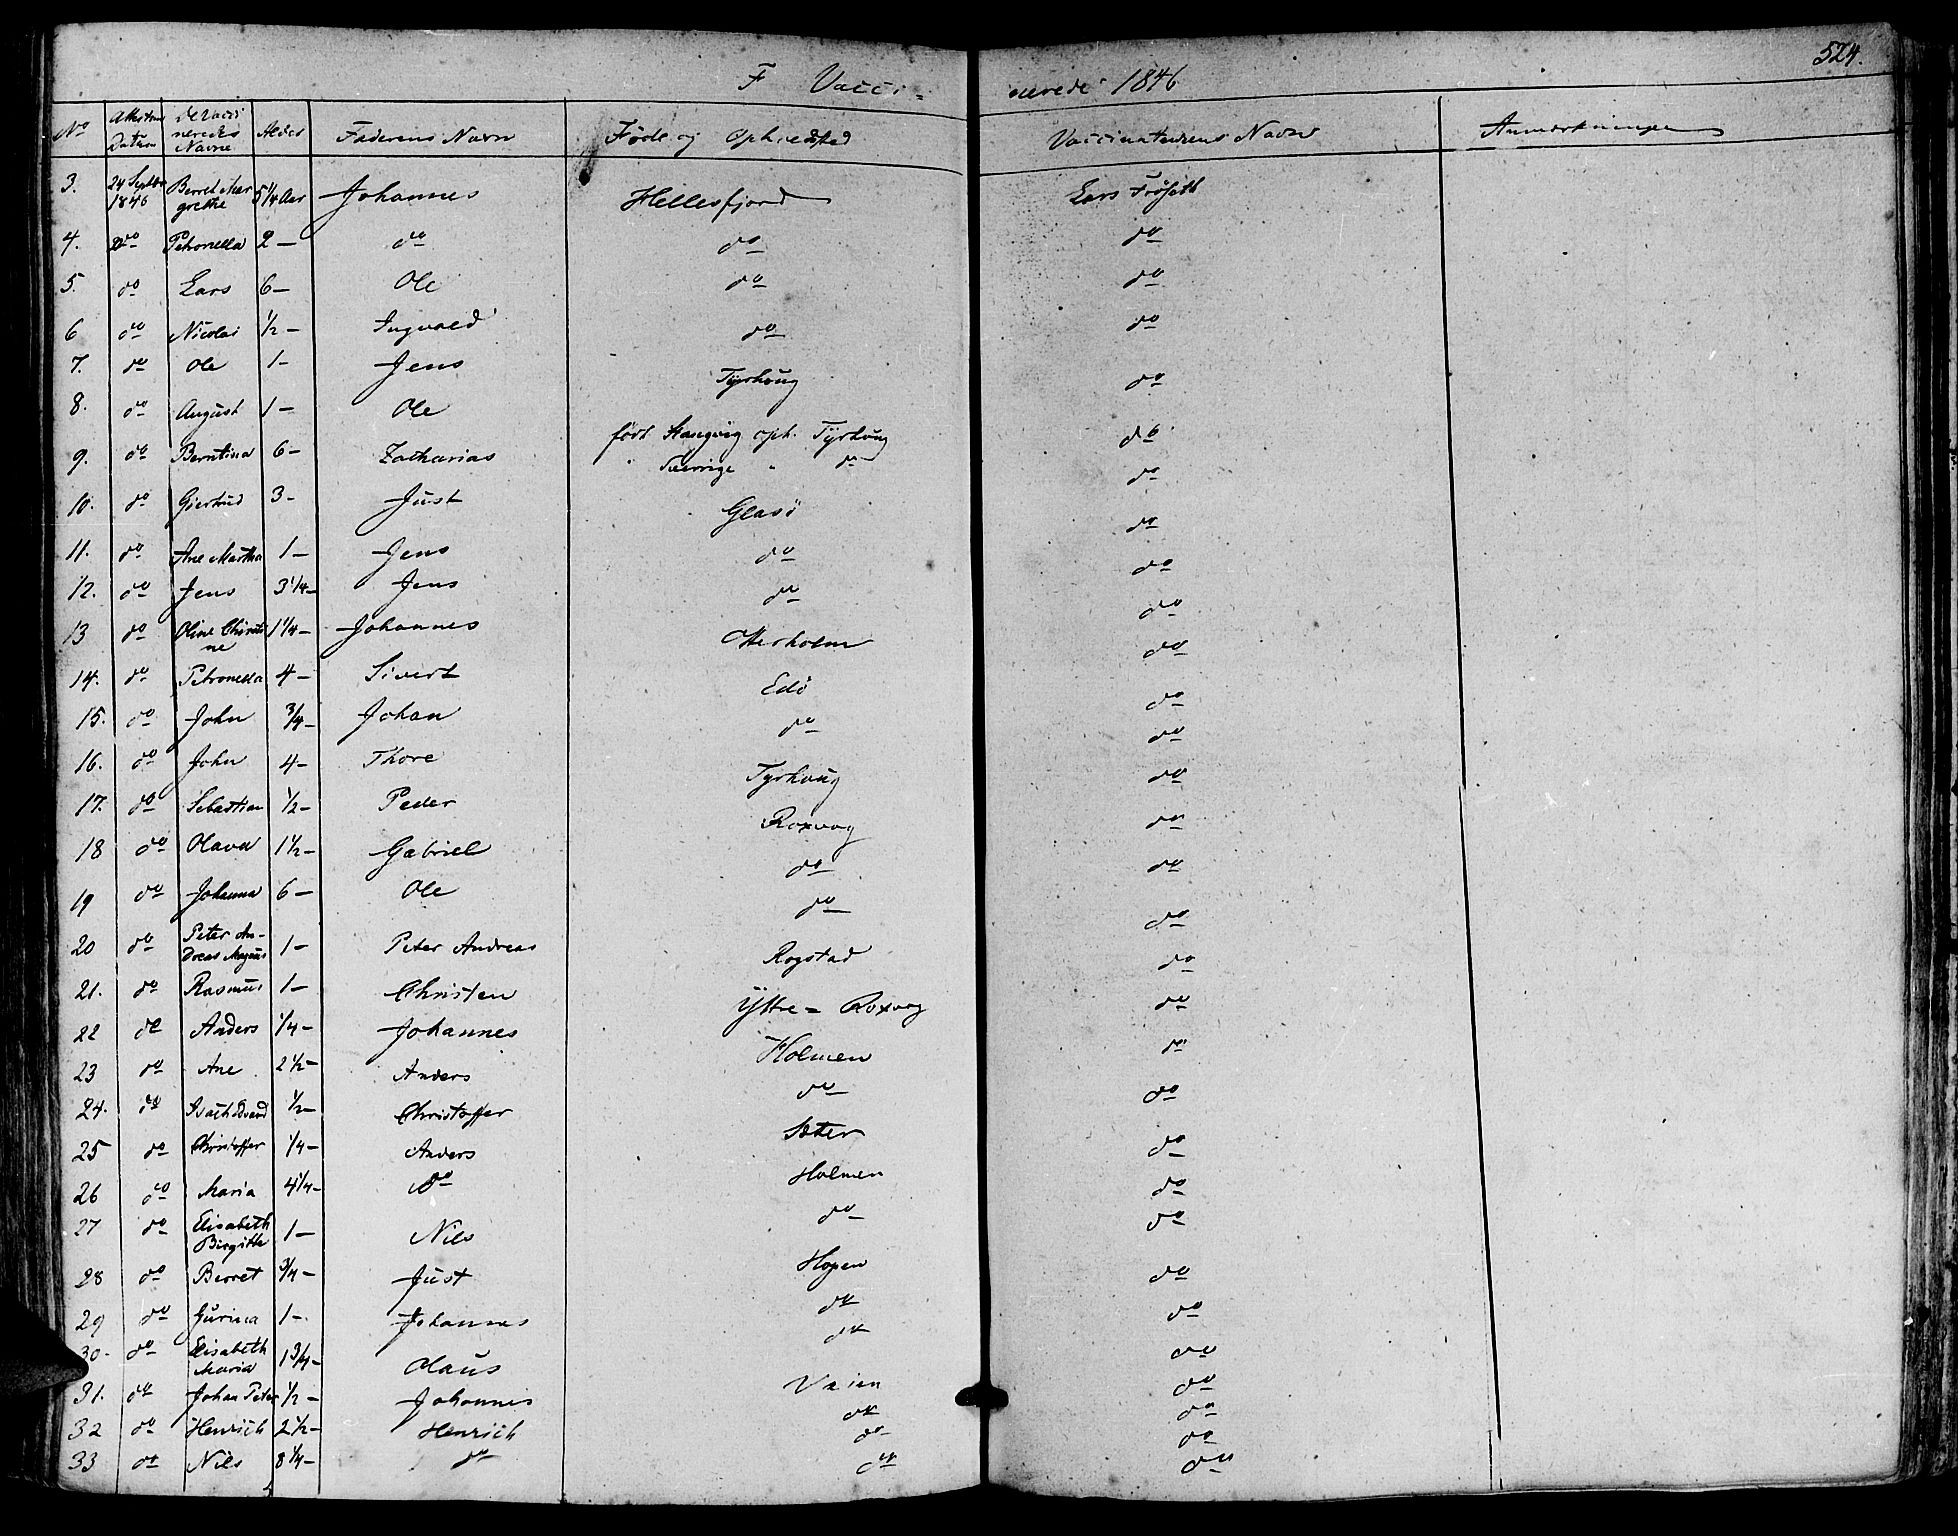 524.
F Vacci- nerede 1846
No Attestens Datum de Vacci neredes Navne Alder Faderens Navn Føde og Opholdssted Vaccinateurens Navn Anmærkninger
3. 24 Septbr 1846 Berret Mar grethe 5 1/4 Aar Johannes Hellesfjord Lars Frøseth
4. do Petronella 2 — do do do
5. do Lars 6 — Ole do do
6 do Nicolai 1/2 — Ingvald do do
7. do Ole 1 — Jens Tyrhoug do
8. do August 1 — Ole født Stangvig oph. Tyrhoug do
9. do Berntina 6 — Zacharias " Sverrige " do do
10. do Gjertrud 3 — Just Glasö do
11. do Ane Martha 1 — Jens do do
12. do Jens 3 1/4 — Jens do do
13 do Oline Christi ne 1 1/4 — Johannes Otterholm do
14. do Petronella 4 — Sivert Edö do
15. do John 3/4 — Johan do do
16. do John 4 — Thore Tyrhoug do
17. do Sebastian 1/2 — Peder Roxvog do
18 do Olava 1 1/2 — Gabriel do do
19 do Johanna 6 — Ole do do
20 do Peter An- dreas Magnus 1 — Peter Andreas Rogstad do
21. do Rasmus 1 — Christen Yttre = Roxvog do
22 do Anders 1/4 — Johannes Holmen do
23 do Ane 2 1/2 — Anders do do
24. do 1/2 — Christoffer Sæter do
25 do Christoffer 1/4 — Anders Holmen do
26 do Maria 4 1/4 — do do do
27 do Elisabeth Birgitte 1 — Nils Hopen do
28 do Berret 3/4 — Just do do
29 do Gurina 1 — Johannes do do
30 do Elisabeth Maria 1 3/4 — Olaus Vaien do
31. do Johan Peter 1/2 — Johannes do do
32 do Henrich 2 1/2 — Henrich do do
33 do Nils 8 1/4 — do do do